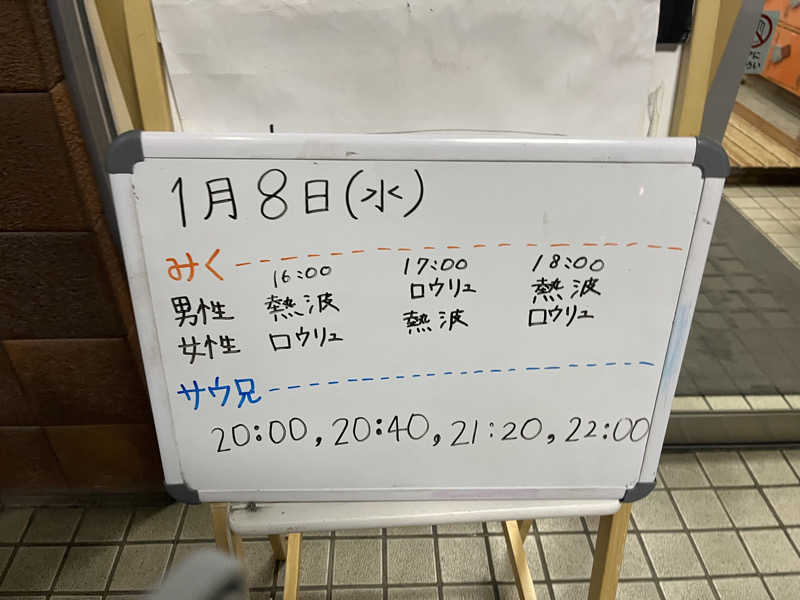 1月8日(水)
みく
16:00 17:00 18:00
男性 熱波 ロウリュ 熱波
女性 ロウリュ 熱波 ロウリュ
サウ兄
20:00, 20:40, 21:20, 22:00